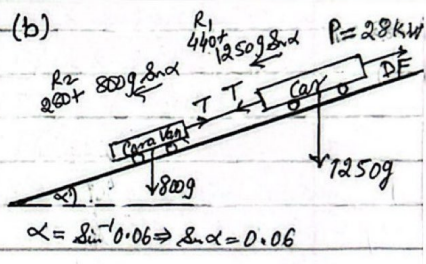 (b)
R₁
440+
1250g Sinα
P = 28kW
R₂
280+ 800g Sinα
T T
Car
DF
Caravan
1250g
800g
α
α = Sin⁻¹0.06 ⇒ Sinα = 0.06